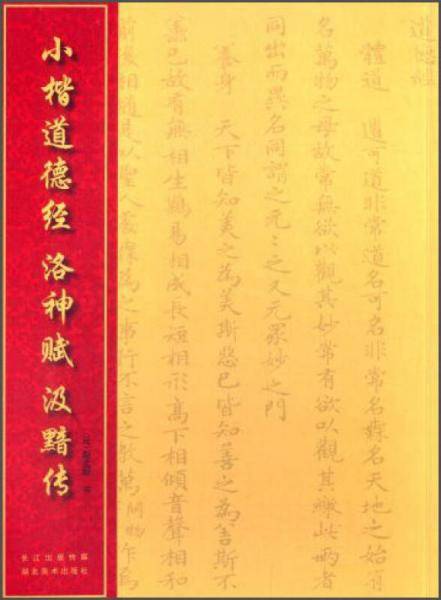 小楷道德经 洛神赋 汲黯传
长江出版传媒
湖北美术出版社
道德經
體道 道可道非常道名可名非常名無名天地之始有
名萬物之母故常無欲以觀其妙常有欲以觀其徼此兩者
同出而異名同謂之元〻之又元眾妙之門
養身 天下皆知美之為美斯惡已皆知善之為善斯不
善已故有無相生難易相成長短相形高下相傾音聲相和
前後相隨是以聖人處無為之事行不言之教萬物作焉